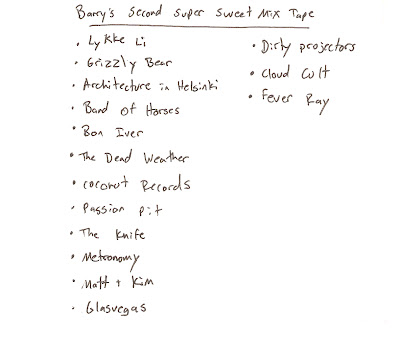 Barry's Second Super Sweet Mix Tape
• Lykke Li
• Grizzly Bear
• Architecture in Helsinki
• Band of Horses
• Bon Iver
• The Dead Weather
• coconut Records
• Passion pit
• The Knife
• Metronomy
• Matt + Kim
• Glasvegas
• Dirty projectors
• Cloud Cult
• Fever Ray